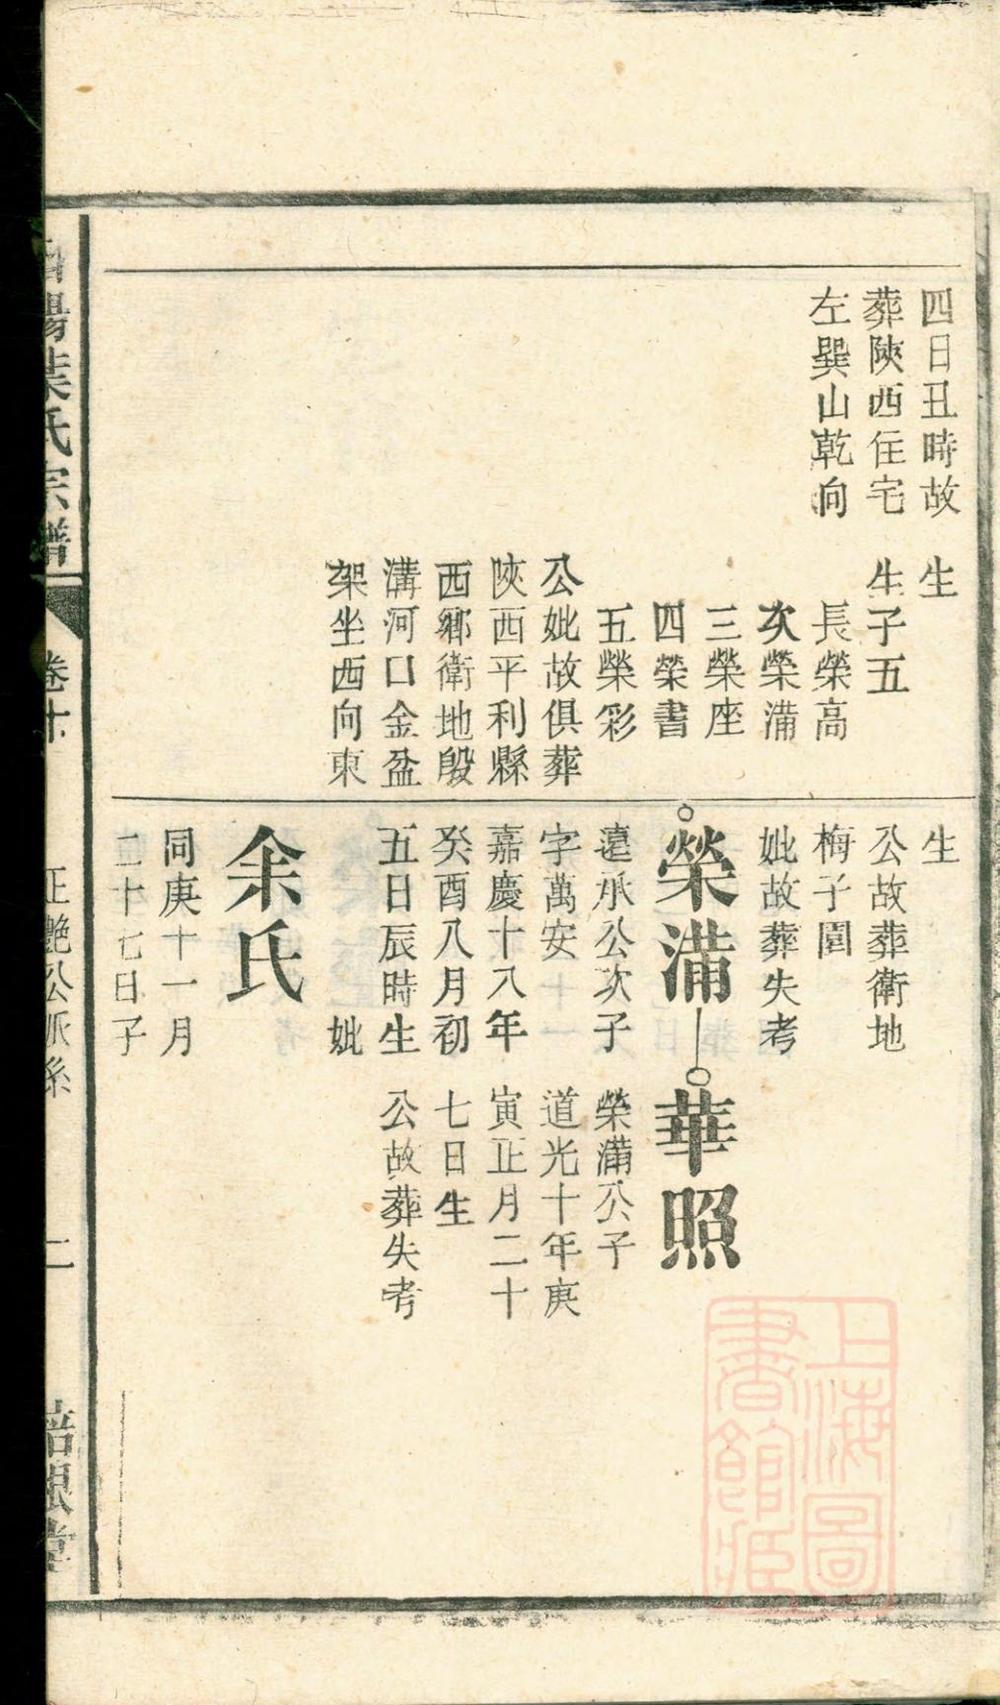 四日丑時故
葬陝西住宅
左巽山乾向
生
生子五
長榮高
次榮滿
三榮座
四榮書
五榮彩
公妣故俱葬
陝西平利縣
西鄉衛地殷
溝河口金盆
架坐西向東
生
公故葬衛地
梅子園
妣故葬失考
榮滿
遠承公次子
字萬安
嘉慶十八年
癸酉八月初
五日辰時生
妣
余氏
同庚十一月
二十七日子
華照
榮滿公子
道光十年庚
寅正月二十
七日生
公故葬失考
葉氏宗譜
卷十
正艷公派系
二
上海圖
書館藏